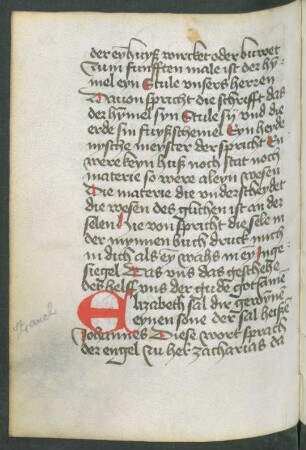 der ey huyß wircket oder buwet
Zum funfften male ist der hÿ
mel eyn Stule unsers herren
Dauon spricht die schrifft das
der hÿmel syn Stule sÿ und die
erde sin fuyßschemel Eyn heyde
nysche meyster der spricht En
were keyn huß noch stat noch
materie so were aleyn wesen
Die materie die underscheydet
die wesen des glichen ist an der
selen Hie von spricht die sele in
der mynnen buch druck mich
in dich als ey wahs in ey Inge
siegel Das uns das geschehe
des helff uns der gude got Amen
Elyzabeth sal die gewyne
eynen sone der sal heisse
Johannes Diese wort sprach
der engel zu her zacharias da